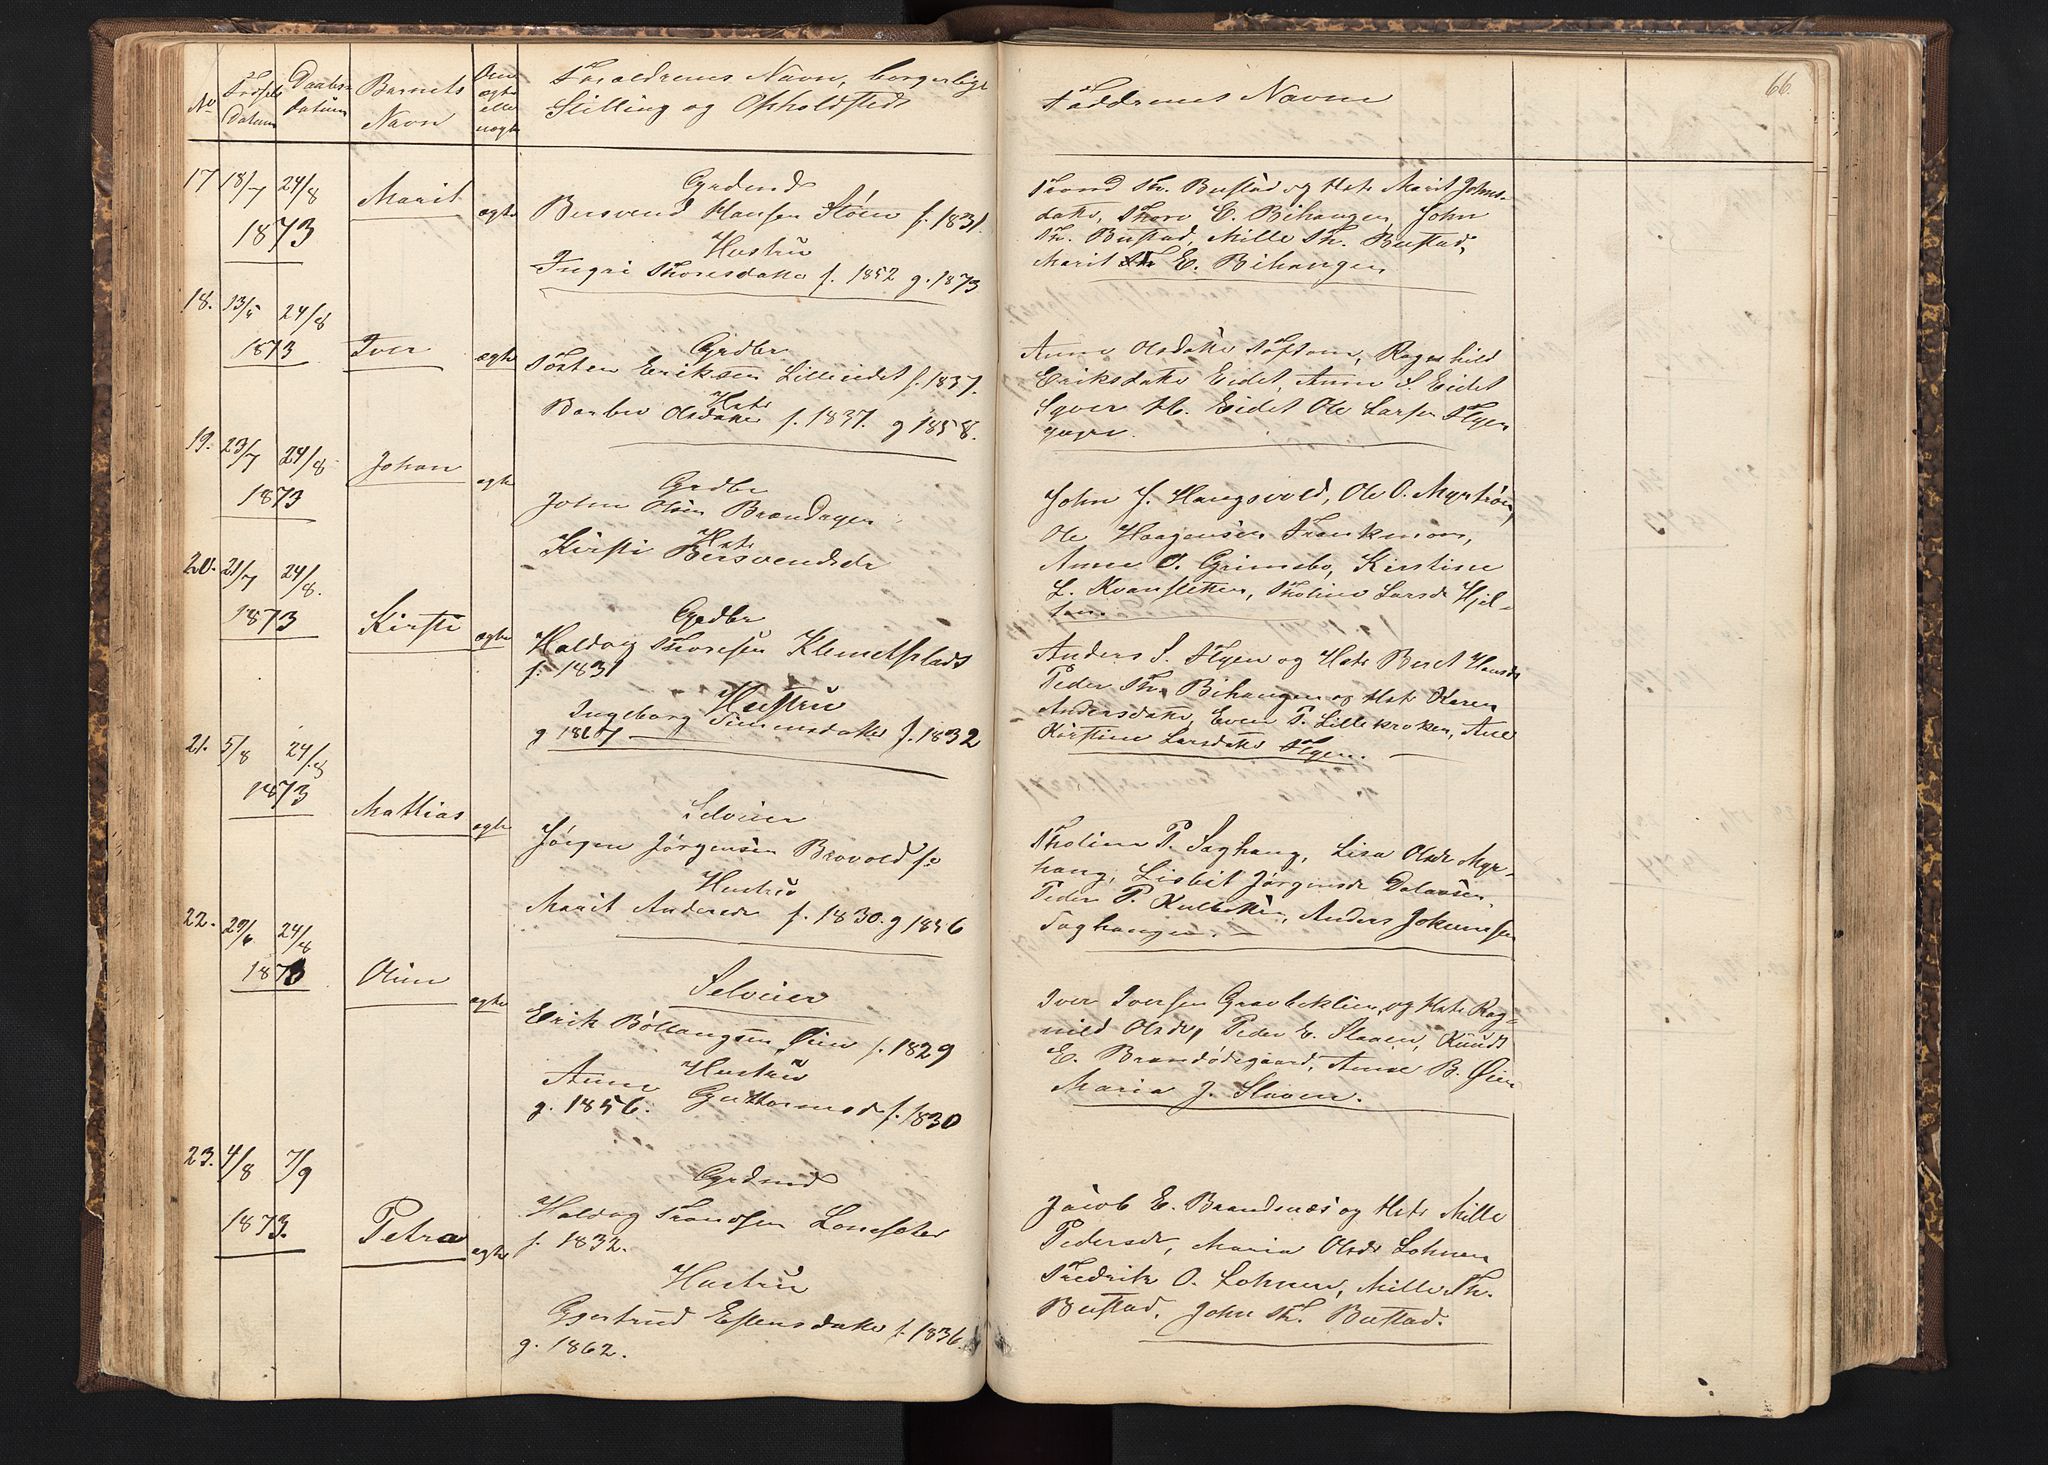 66.
No
Fødsels
Datum
Daabs-
datum
Barnets
Navn
Om
ægte
eller
uægte
Foraldrenes Navn, borgerlige
Stilling og Opholdsted
Faddrenes Navne
17 18/7 24/8
1873
Marit
ægte
Grdmd
Bersvend Hansen Støen f. 1831.
Hustru
Ingri Thoresdatter f. 1852 g. 1873
Trond Th. Bustad og Hstr Marit Johns-
datter, Thore E. Bihangen, John
Th. Bustad, Mille Th. Bustad,
Marit E. Bihangen
18. 13/5 24/8
1873
Iver
ægte
Grdbr
Tosten Eriksen Lilleeidet f. 1837.
Hstr
Barbro Olsdatter f. 1837. g 1858.
Anne Olsdatter Toftom, Ragnhild
Eriksdatter Eidet, Anne S. Eidet
Syver H. Eidet Ole Larsen Flyen
19. 23/7 24/8
1873
Johan
egte
Grdbr
John Olsen Brændagen
Hstr
Kirsti Bersvendsdr
John J. Haugsvold, Ole O. Myrtrøen,
Ole Haagensen Frankmoen,
Anne O. Grimsbo, Kirstine
L. Kvansletten, Tholine Larsdr Hjel-
20. 21/7 24/8.
1873
Kirsti
ægte
Grdbr
Haldog Thoresen Klemetsplads
f. 1831
Hustru
Ingeborg Simensdatter f. 1832
g 1867
Anders S. Flyen og Hstr Beret Hansdr
Peder Th. Bihangen og Hstr Karen
Andersdatter, Even P. Lillekroken, Ane
Kirstine Larsdatter Flyen.
21. 5/8 24/8
1873
Mathias
egte
Selveier
Jørgen Jørgensen Brovold f.
Hustru
Marit Andersdr f. 1830. g 1856
Tholine P. Saghaug, Lisa Olsdr Myr-
haug, Lisbet Jørgensdr Dalaasen,
Peder P. Kulbekken, Anders Johannsen
Saghaugen.
22. 29/6 24/8
1873
Oline
egte
Selveier
Erik Bøllaugsen Øien f. 1829
Hustru
Anne Guttormsdr f. 1830
g. 1856.
Iver Iversen Gravbeklien og Hstr Rag-
nild Olsdr, Peder E. Slaaen, Knudt
E. Brændødegaard, Anne B. Øien
Maria J. Slaaen.
23. 4/8 7/9
1873.
Petra
egte
Grdmd
Haldog Trondsen Lonesater
f. 1832.
Hustru
Gjertrud Estensdatter f. 1836
g. 1862.
Jacob E. Brandsnæs og Hstr Mille
Pedersdr, Maria Olsdr Lohnen
Fredrik O. Lohnen, Mille Th.
Bustad, John Th. Bustad.